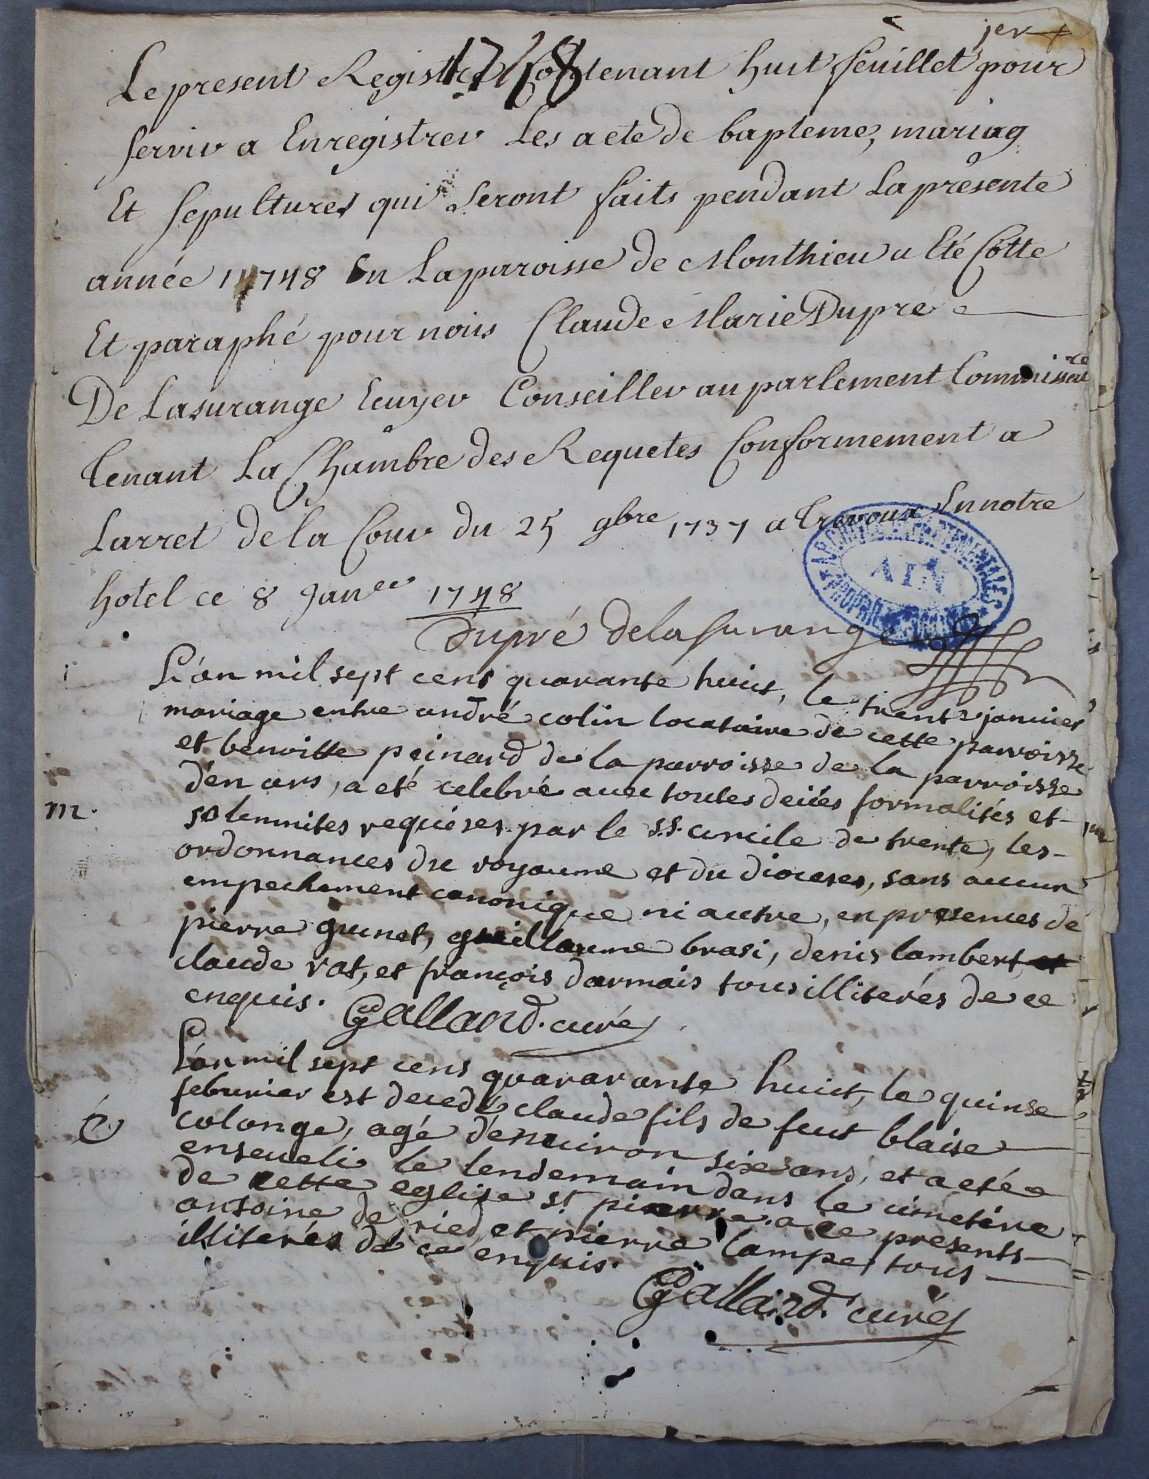 jer
1748
Le present Registre Contenant huit feuillet pour
servir a Enregistrer Les acte de bapteme, mariag
Et sepultures qui Seront faits pendant La presente
année 1748 En La paroisse de Monthieu a Eté Cotte
Et paraphé pour nous Claude Marie Dupré
De Lasurange Ecuyer Conseiller au parlement Commissre
tenant La Chambre des Requetes Conformement a
Larret de la Cour du 25 9bre 1737 a Trevoux En notre
hotel ce 8 Janer 1748
Dupré delasurange
ARCHIVES DEPARTEMENTALES
AIN
PROPRIETE PUBLIQUE
L'an mil sept cens quarante huict, le trente janvier
mariage entre andré colin locataire de cette parroisse
et benoitte peinard de la parroisse de la parroisse
d'en ars, a eté celebré avec toutes deües formalités et
m.
solemnites requises par le SS. concile de trente, les
ordonnances du royaume et du dioceses, sans aucun
empechement canonique ni autre, en presences de
pierre grunet, guillaume brasi, denis lambert et
claude rat, et françois darmais tous illiterés de ce
enquis. Galland. curé
L'an mil sept cens quararante huict, le quinse
febvrier est decedé claude fils de feut blaise
colange, agé denuiron six ans, et a eté
enseveli le lendemain dans le cimetére
de cette eglise st pierre a ce presents
antoine de ried et pierre lampe tous
illiterés de ce enquis.
Galland. curé